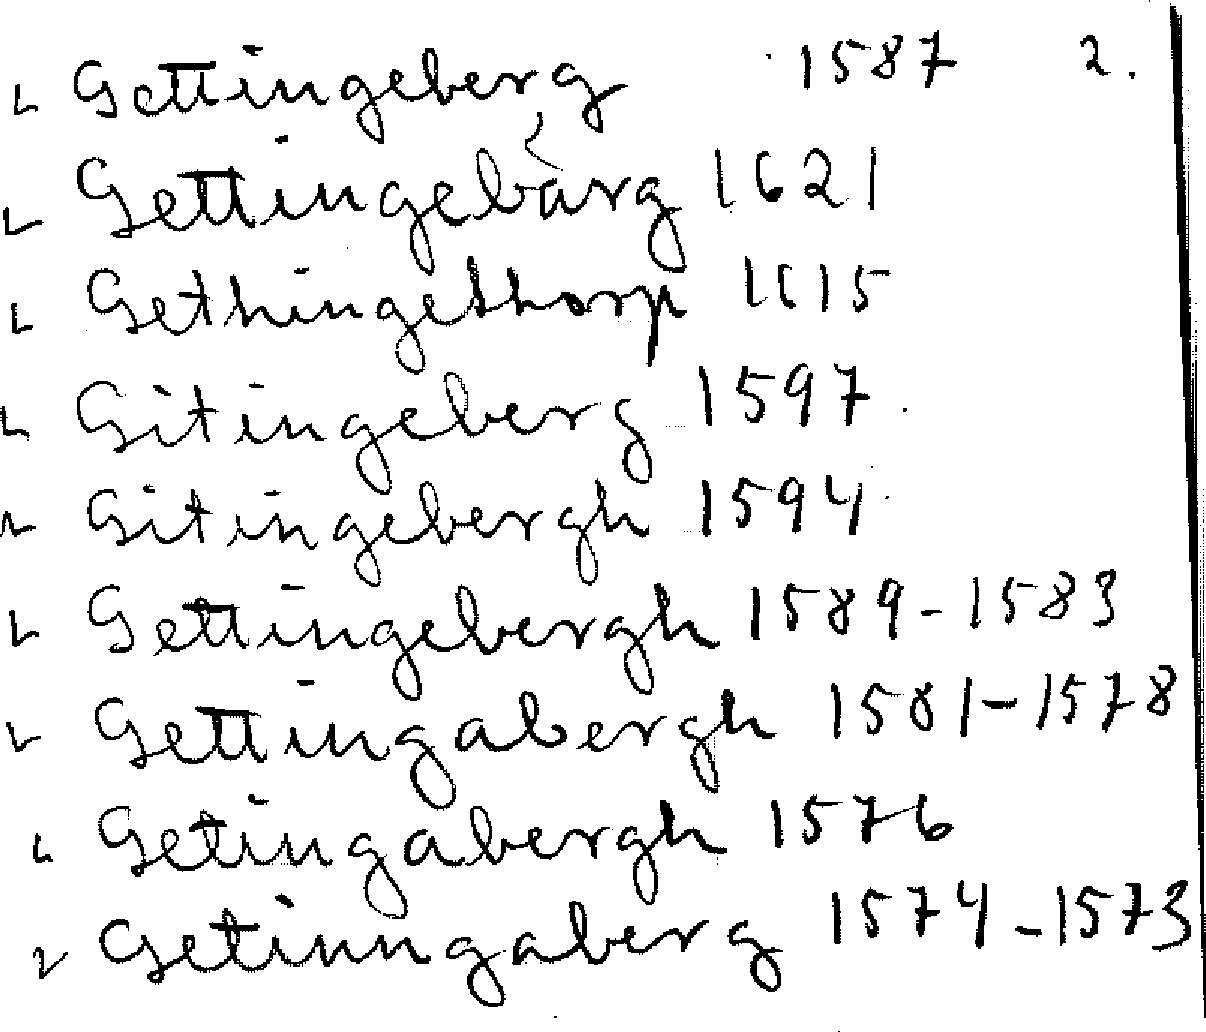 Gettingeberg 1587 2.
Gettingebärg 1621
Gethingethorp 1615
Gitingeberg 1597
Gitingebergh 1594
Gettingebergh 1589-1583
Gettingabergh 1581-1578
Getingabergh 1576
Getinngaberg 1574-1573